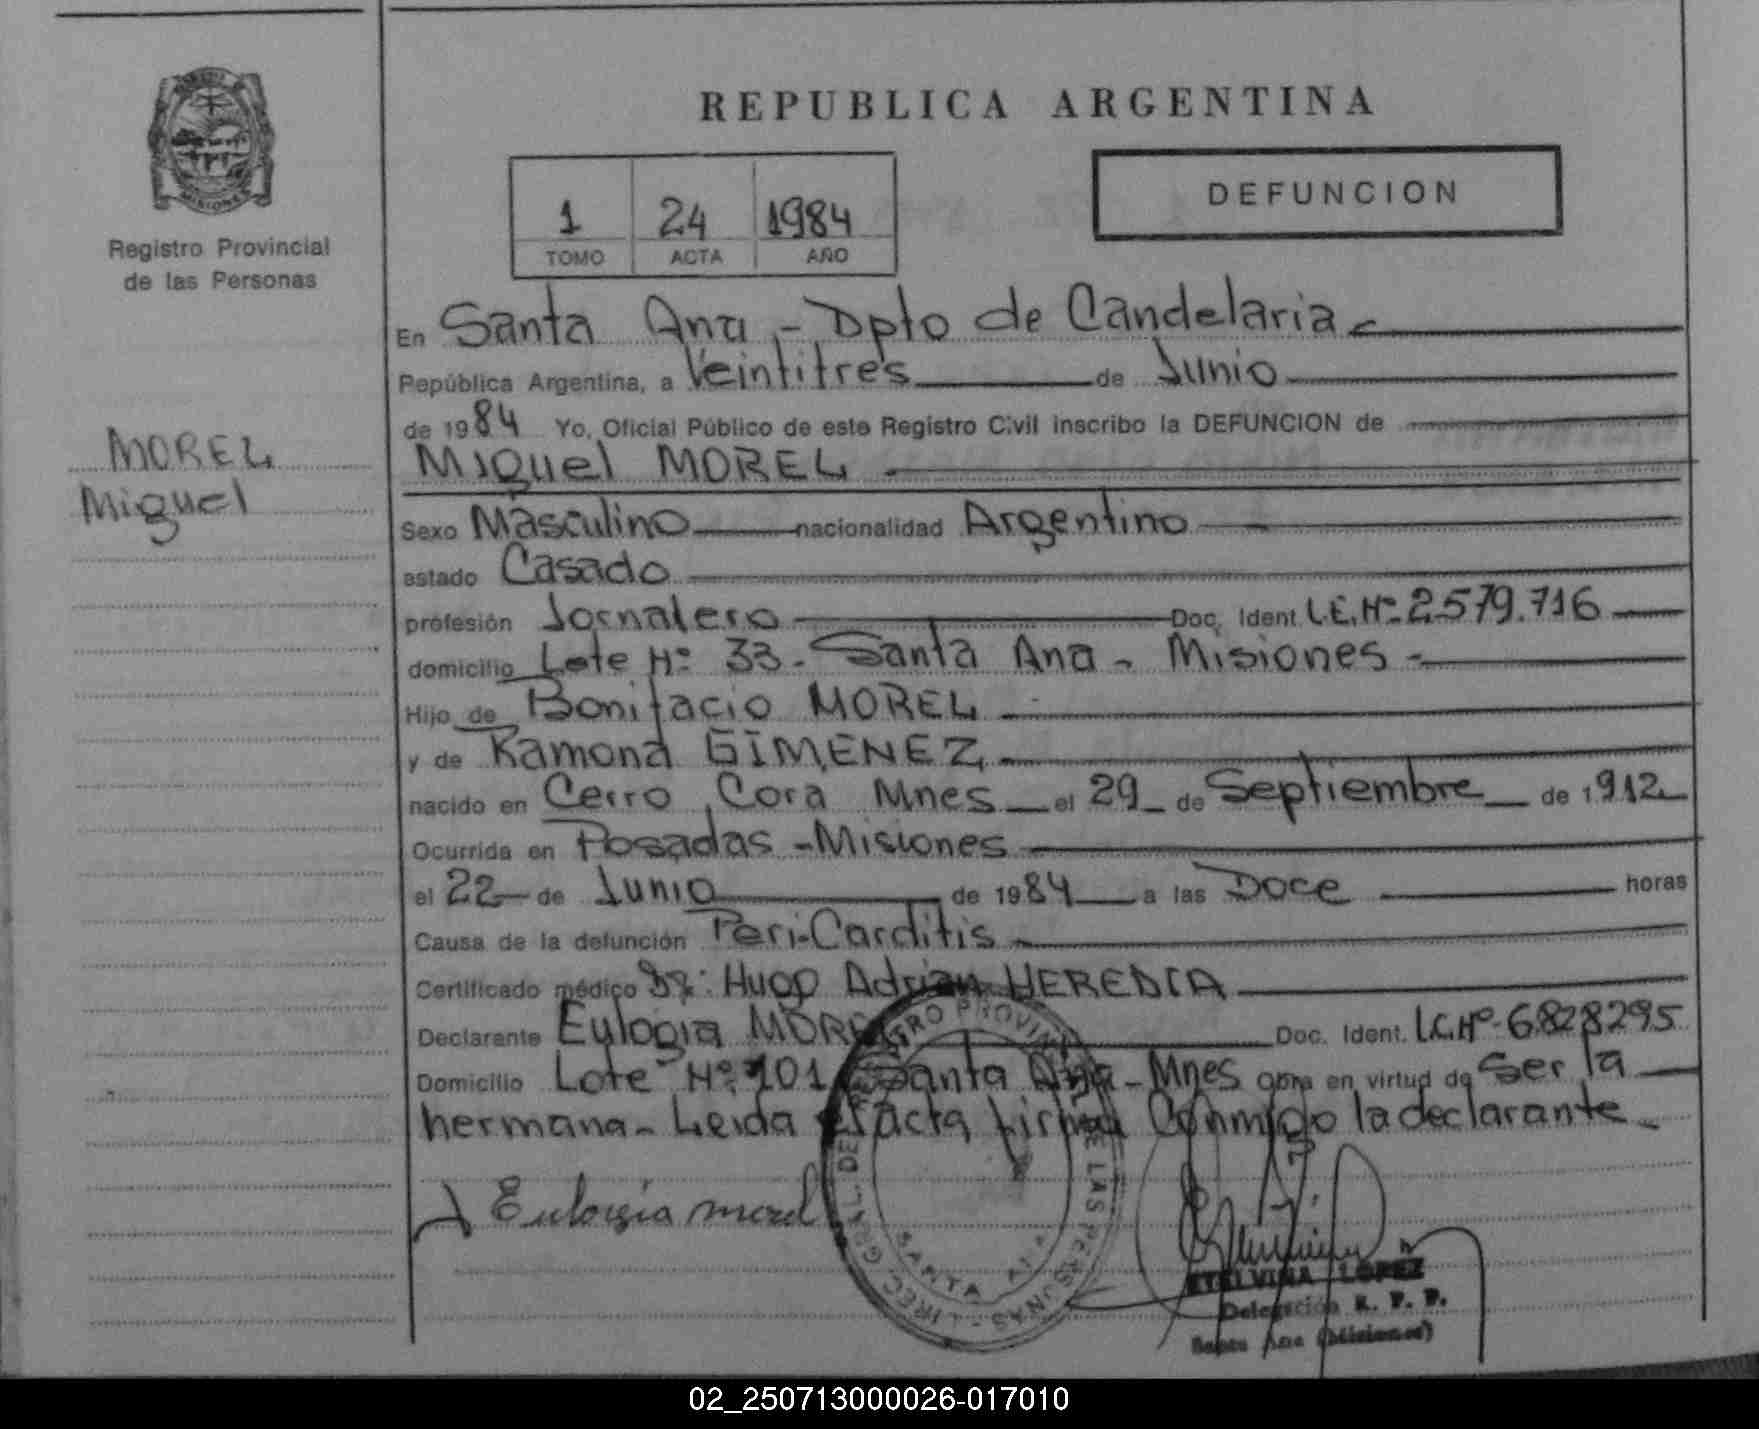 REPUBLICA ARGENTINA
MISIONES
Registro Provincial
de las Personas
1 24 1984
TOMO ACTA AÑO
DEFUNCION
MOREL
Miguel
En Santa Ana - Dpto de Candelaria
República Argentina, a Veintitrés de Junio
de 1984 Yo, Oficial Público de este Registro Civil inscribo la DEFUNCION de
Miguel MOREL
Sexo Masculino nacionalidad Argentino
estado Casado
profesión Jornalero Doc. Ident. L.E. Nº 2.579.716
domicilio Lote Nº 33 - Santa Ana - Misiones -
Hijo de Bonifacio MOREL
y de Ramona GIMENEZ
nacido en Cerro Cora Mnes el 29 de Septiembre de 1912
Ocurrida en Posadas - Misiones
el 22 de Junio de 1984 a las Doce horas
Causa de la defunción Peri-Carditis
Certificado médico Dr: Hugo Adrian HEREDIA
Declarante Eulogia MOREL Doc. Ident. L.C. Nº 6828295
Domicilio Lote Nº 101 Santa Ana - Mnes obra en virtud de Ser la
hermana - Leida el acta firma Conmigo la declarante
Eulogia morel
ETELVINA LOPEZ
Delegación R. P. P.
Santa Ana (Misiones)
DIREC. GRAL. DEL REGISTRO PROVINCIAL DE LAS PERSONAS
SANTA ANA
02_250713000026-017010